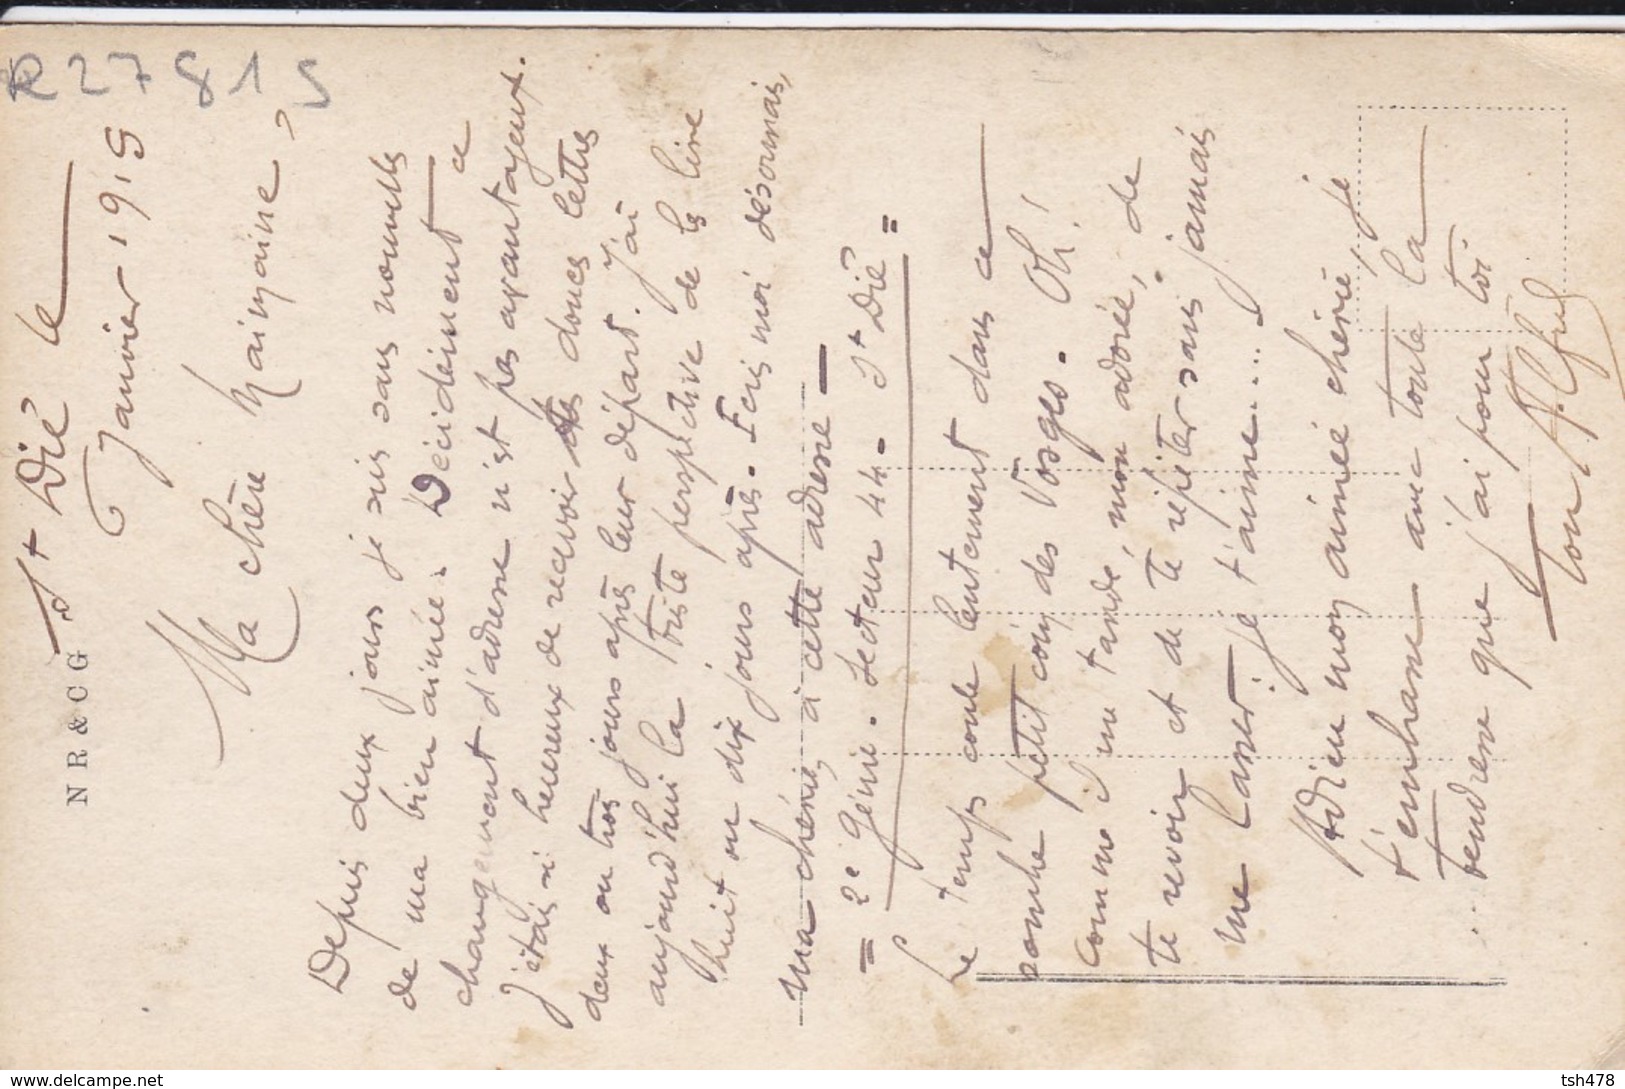 R27819
NR & CG
St Dié le
6 Janvier 1915
Ma chère
Depuis deux jours je suis sans nouvelles
de ma bien aimée. Décidément ce
changement d'adresse n'est pas avantageux.
J'étais si heureux de recevoir tes douces lettres
deux ou trois jours après leur départ. J'ai
aujourd'hui la triste perspective de les lire
huit ou dix jours après. Ecris moi désormais,
ma chérie, à cette adresse —
= 2e Génie. Secteur 44. St Dié =
Le temps coule lentement dans ce
sombre petit coin des Vosges. Oh!
comme il me tarde, mon adorée, de
te revoir et de te répéter sans jamais
me lasser: je t'aime....
Adieu mon aimée chérie, je
t'embrasse avec toute la
tendresse que j'ai pour toi.
Ton Alfred
tsh478
www.delcampe.net